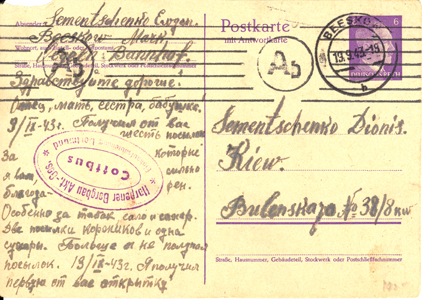 Absender: Sementschenko Eugen.
Beeskow Mark,
Bahnhof.
Straße, Hausnummer, Gebäudeteil, Stockwerk
Postkarte
mit Antwortkarte
BEESKOW
19.9.43-18
b
6
DEUTSCHES REICH
Ab
Здравствуйте дорогие!
Отец, мать, сестра, бабушка.
9/IX-43г. Получил от вас
шесть посылок
За которые
я вам сильно
благода- рен.
Особенно за табак сало и сахар.
Две посылки коржиков и одна
сухари. Больше я не получил
посылок. 19/IX-43г. Я получил
первую от вас открытку
Harpener Bergbau Akt.-Ges.
Cottbus
Sementschenko Dionis.
Kiew.
Bulonskaja № 38/8 kw
Straße, Hausnummer, Gebäudeteil, Stockwerk oder Postschließfachnummer